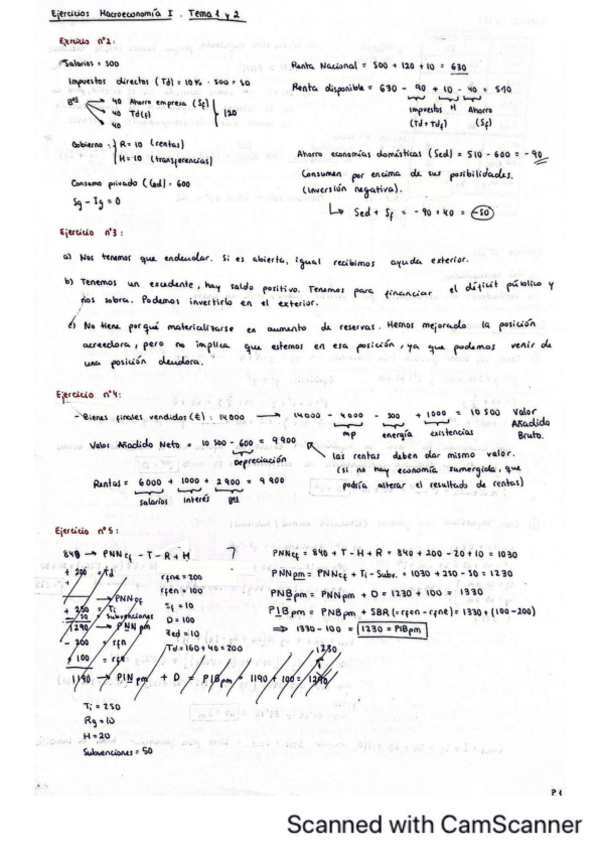 Ejercicios Macroeconomía I. Tema 1 y 2
Ejercicio nº2:
Salarios = 500
Impuestos directos (Td) = 10% · 500 = 50
Bºs → 40 Ahorro empresa (Sf)
→ 40 Td(f)
→ 40
120
Gobierno: R = 10 (rentas)
H = 10 (transferencias)
Consumo privado (Ced) = 600
Sg - Ig = 0
Renta Nacional = 500 + 120 + 10 = 630
Renta disponible = 630 - 90 + 10 - 40 = 510
Impuestos H Ahorro
(Td + Tdf) (Sf)
Ahorro economías domésticas (Sed) = 510 - 600 = -90
Consumen por encima de sus posibilidades.
(Inversión negativa).
↳ Sed + Sf = -90 + 40 = -50
Ejercicio nº3:
a) Nos tenemos que endeudar. Si es abierta, igual recibimos ayuda exterior.
b) Tenemos un excedente, hay saldo positivo. Tenemos para financiar el déficit público y
nos sobra. Podemos invertirlo en el exterior.
c) No tiene porqué materializarse en aumento de reservas. Hemos mejorado la posición
acreedora, pero no implica que estemos en esa posición, ya que podemos venir de
una posición deudora.
Ejercicio nº4:
- Bienes finales vendidos (€): 14000 → 14000 - 4000 - 500 + 1000 = 10 500 Valor
Añadido
Bruto.
mp energía existencias
Valor Añadido Neto = 10 500 - 600 = 9 900
Depreciación
las rentas deben dar mismo valor.
(si no hay economía sumergida, que
podría alterar el resultado de rentas)
Rentas = 6000 + 1000 + 2 900 = 9 900
Salarios interés Bºs
Ejercicio nº5:
840 → PNNcf - T - R + H
+ 200 = Td
→ PNNcf
+ 250 = Ti
Subvenciones
→ PNNpm
- 200 = rfn
+ 100 = rfe
1190 → PINpm + D = PIBpm = 1190 + 100 = 1290
1230
rfne = 200
rfen = 100
Sf = 10
D = 100
Sed = 10
Td = 160 + 40 = 200
Ti = 250
Rg = 10
H = 20
Subvenciones = 50
PNNcf = 840 + T - H + R = 840 + 200 - 20 + 10 = 1030
PNNpm = PNNcf + Ti - Subv. = 1030 + 250 - 50 = 1230
PNBpm = PNNpm + D = 1230 + 100 = 1330
PIBpm = PNBpm + SBR (= rfen - rfne) = 1330 + (100 - 200)
⇒ 1330 - 100 = 1230 = PIBpm
P.1
Scanned with CamScanner